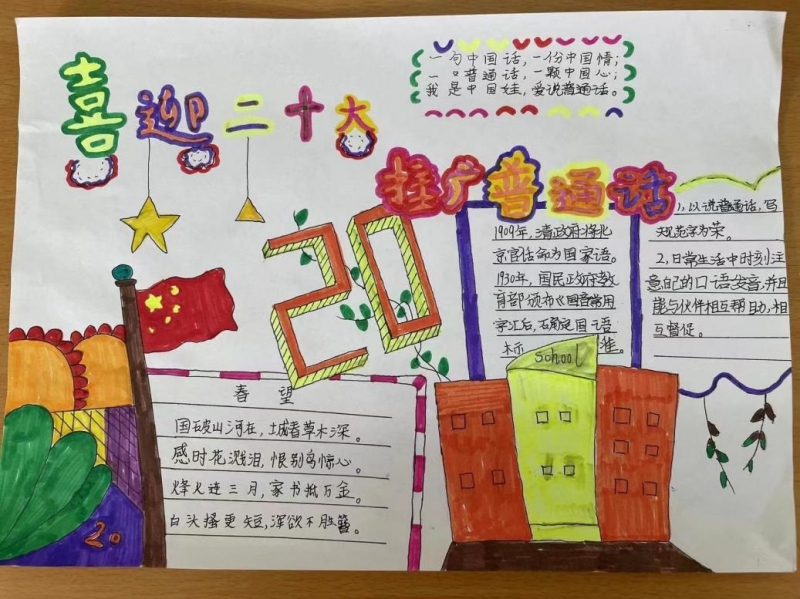 喜迎二十大
一句中国话，一份中国情；
一口普通话，一颗中国心；
我是中国娃，爱说普通话。
推广普通话
20
1909年，清政府将北
京官话命为国家语。
1930年，国民政府教
育部颁布《国音常用
字汇》后，确定国语
标准。
1，以说普通话，写
规范字为荣。
2，日常生活中时刻注
意自己的口语发音，并且
能与伙伴相互帮助，相
互督促。
school
春望
国破山河在，城春草木深。
感时花溅泪，恨别鸟惊心。
烽火连三月，家书抵万金。
白头搔更短，浑欲不胜簪。